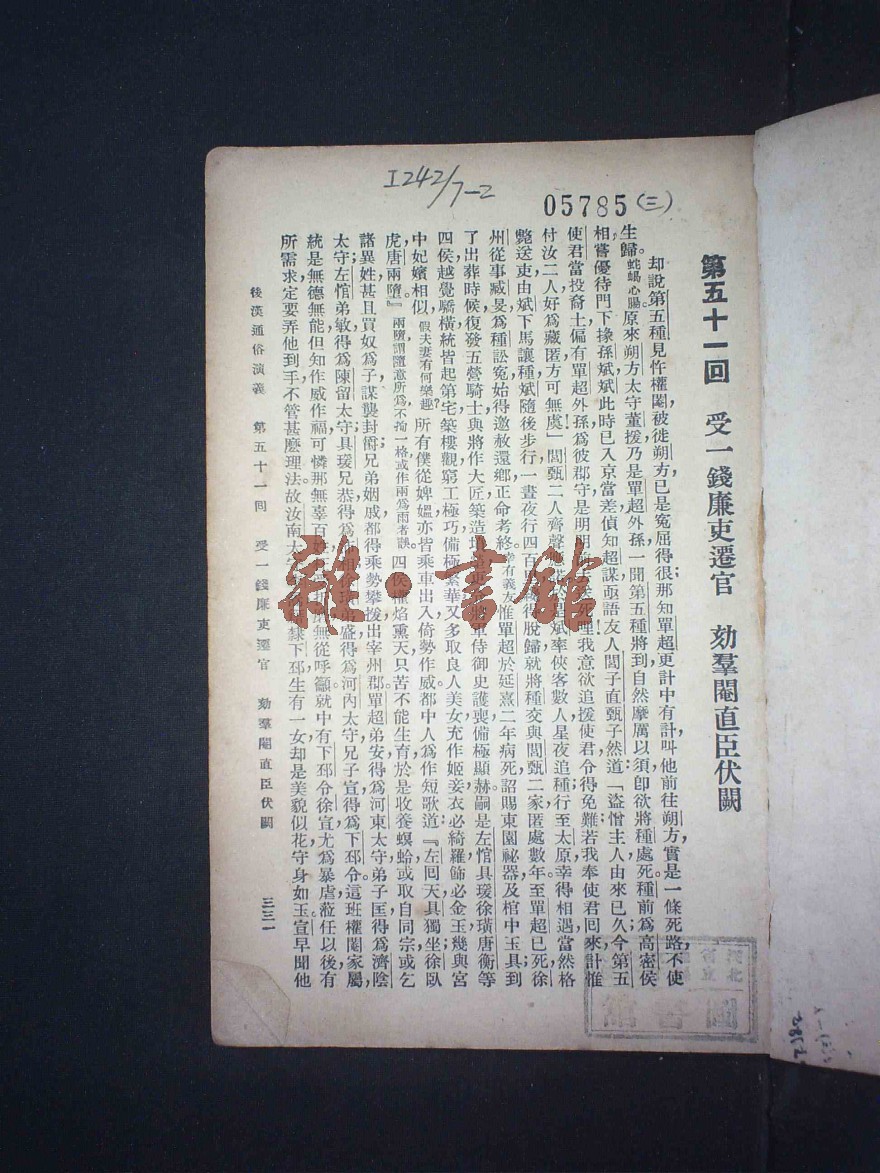 I242/7-2
05785(三)
第五十一回　受一錢廉吏遷官　劾羣閹直臣伏闕
却說第五種見忤權閹，被徙朔方，已是寃屈得很，那知單超更計中有計，叫他前往朔方，實是一條死路，不使
生歸。蛇蝎心腸原來朔方太守董援，乃是單超外孫，一聞第五種將到，自然摩厲以須，卽欲將種處死。種前爲高密侯
相，嘗優待門下掾孫斌，斌此時已入京當差，偵知超謀，亟語友人閻子直甄子然道：「盜憎主人，由來已久，今第五
使君當投裔土，偏有單超外孫爲彼郡守，是明明
死哩！我意欲追援使君，令得免難，若我奉使君回來，計惟
付汝二人，好爲藏匿，方可無虞」閻甄二人齊聲
是斌率俠客數人，星夜追種，行至太原，幸得相遇，當然格
斃送吏，由斌下馬讓種，斌隨後步行，一晝夜行四百
得脫歸，就將種交與閻甄二家，匿處數年，至單超已死，徐
州從事臧旻爲種訟寃，始得邀赦還鄉，正命考終。幸有義友惟單超於延熹二年病死，詔賜東園祕器及棺中玉具，到
了出葬時候，復發五營騎士，與將作大匠築造墳
將軍侍御史護喪，備極顯赫。嗣是左悺具瑗徐璜唐衡等
四侯，越覺驕橫，統皆起第宅，築樓觀，窮工極巧，備極繁華，又多取良人美女充作姬妾，衣必綺羅，飾必金玉，幾與宮
中妃嬪相似。假夫妻有何樂趣？所有僕從婢媼，亦皆乘車出入，倚勢作威，都中人爲作短歌道：『左回天，具獨坐，徐臥
虎，唐兩墮。』兩墮謂隨意所爲不拘一格或作兩爲雨者誤。四侯權焰熏天，只苦不能生育，於是收養螟蛉，或取自同宗，或乞
諸異姓，甚且買奴爲子，謀襲封爵，兄弟姻戚，都得乘勢攀援，出宰州郡，單超弟安，得爲河東太守，弟子匡，得爲濟陰
太守，左悺弟敏，得爲陳留太守，具瑗兄恭，得爲
盛，得爲河內太守，兄子宣，得爲下邳令，這班權閹家屬，
統是無德無能，但知作威作福，可憐那無辜百
無從呼籲，就中有下邳令徐宣，尤爲暴虐，蒞任以後，有
所需求，定要弄他到手，不管甚麼理法。故汝南太
隸下邳，生有一女，却是美貌似花，守身如玉。宣早聞他
後漢通俗演義　第五十一回　受一錢廉吏遷官　劾羣閹直臣伏闕　三三一
雜·書館